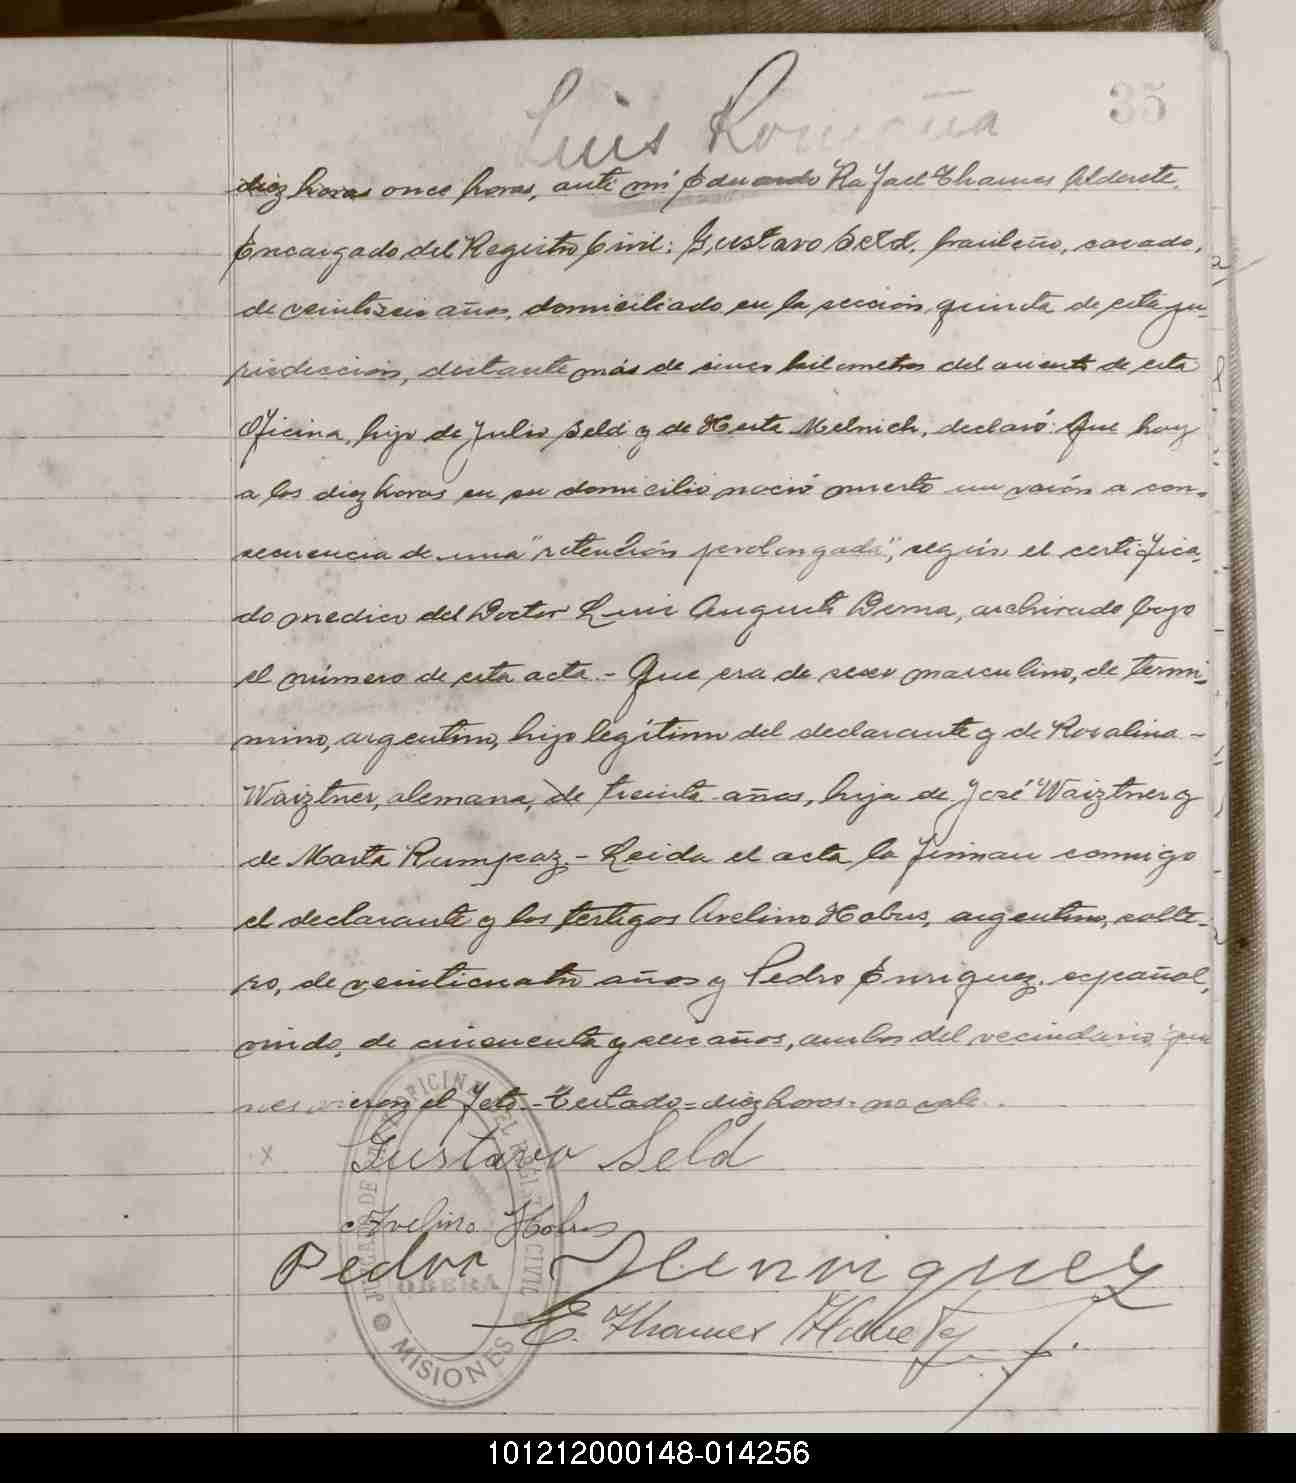 35
Luis Romaña
diez horas once horas, ante mí Eduardo Rafael Thames Alderete,
Encargado del Registro Civil: Gustavo Seld, brasileño, casado,
de veintiseis años, domiciliado en la sección quinta de esta ju-
risdiccion, distante más de cinco kilometros del asiento de esta
Oficina, hijo de Julio Seld y de Herta Melnich, declaró: Que hoy
a las diez horas en su domicilio nació muerto un varón a con-
secuencia de una "retención prolongada", según el certifica-
do medico del Doctor Luis Augusto Derna, archivado bajo
el número de esta acta.- Que era de sexo masculino, de termi-
mino, argentino, hijo legítimo del declarante y de Rosalina-
Waiztner, alemana, de treinta años, hija de José Waiztner y
de Marta Rumpcaz.- Leida el acta la firman conmigo
el declarante y los testigos Avelino Hobus, argentino, solte-
ro, de veinticuatro años y Pedro Enriquez, español,
viudo, de cincuenta y seis años, ambos del vecindario que
vieron el feto.-Testado=diez horas=no vale.
x Gustavo Seld
Avelino Hobus
Pedro Henriquez
E. Thames Alderete
OFICINA DEL REGISTRO CIVIL
OBERA
MISIONES
101212000148-014256